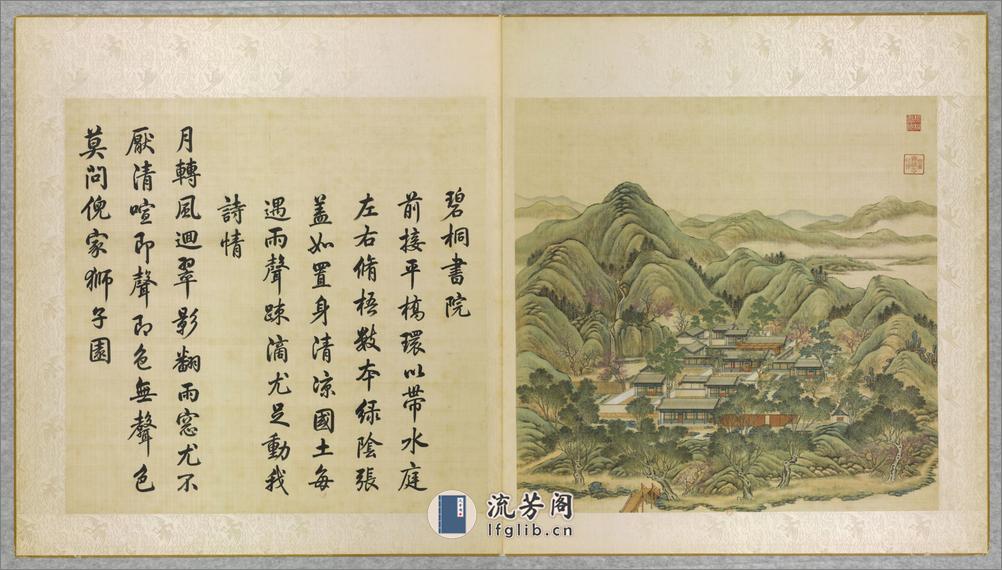 碧桐書院
前接平橋環以帶水庭
左右脩梧數本綠陰張
蓋如置身清涼國土每
遇雨聲疎滴尤足動我
詩情
月轉風迴翠影翻雨窓尤不
厭清喧即聲即色無聲色
莫問倪家獅子園
流芳阁
lfglib.cn